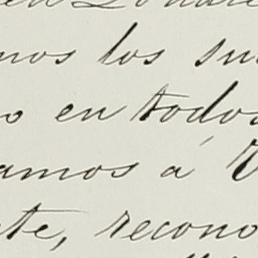 en Londre
mos los su
o en todos
amos á V
te, recono